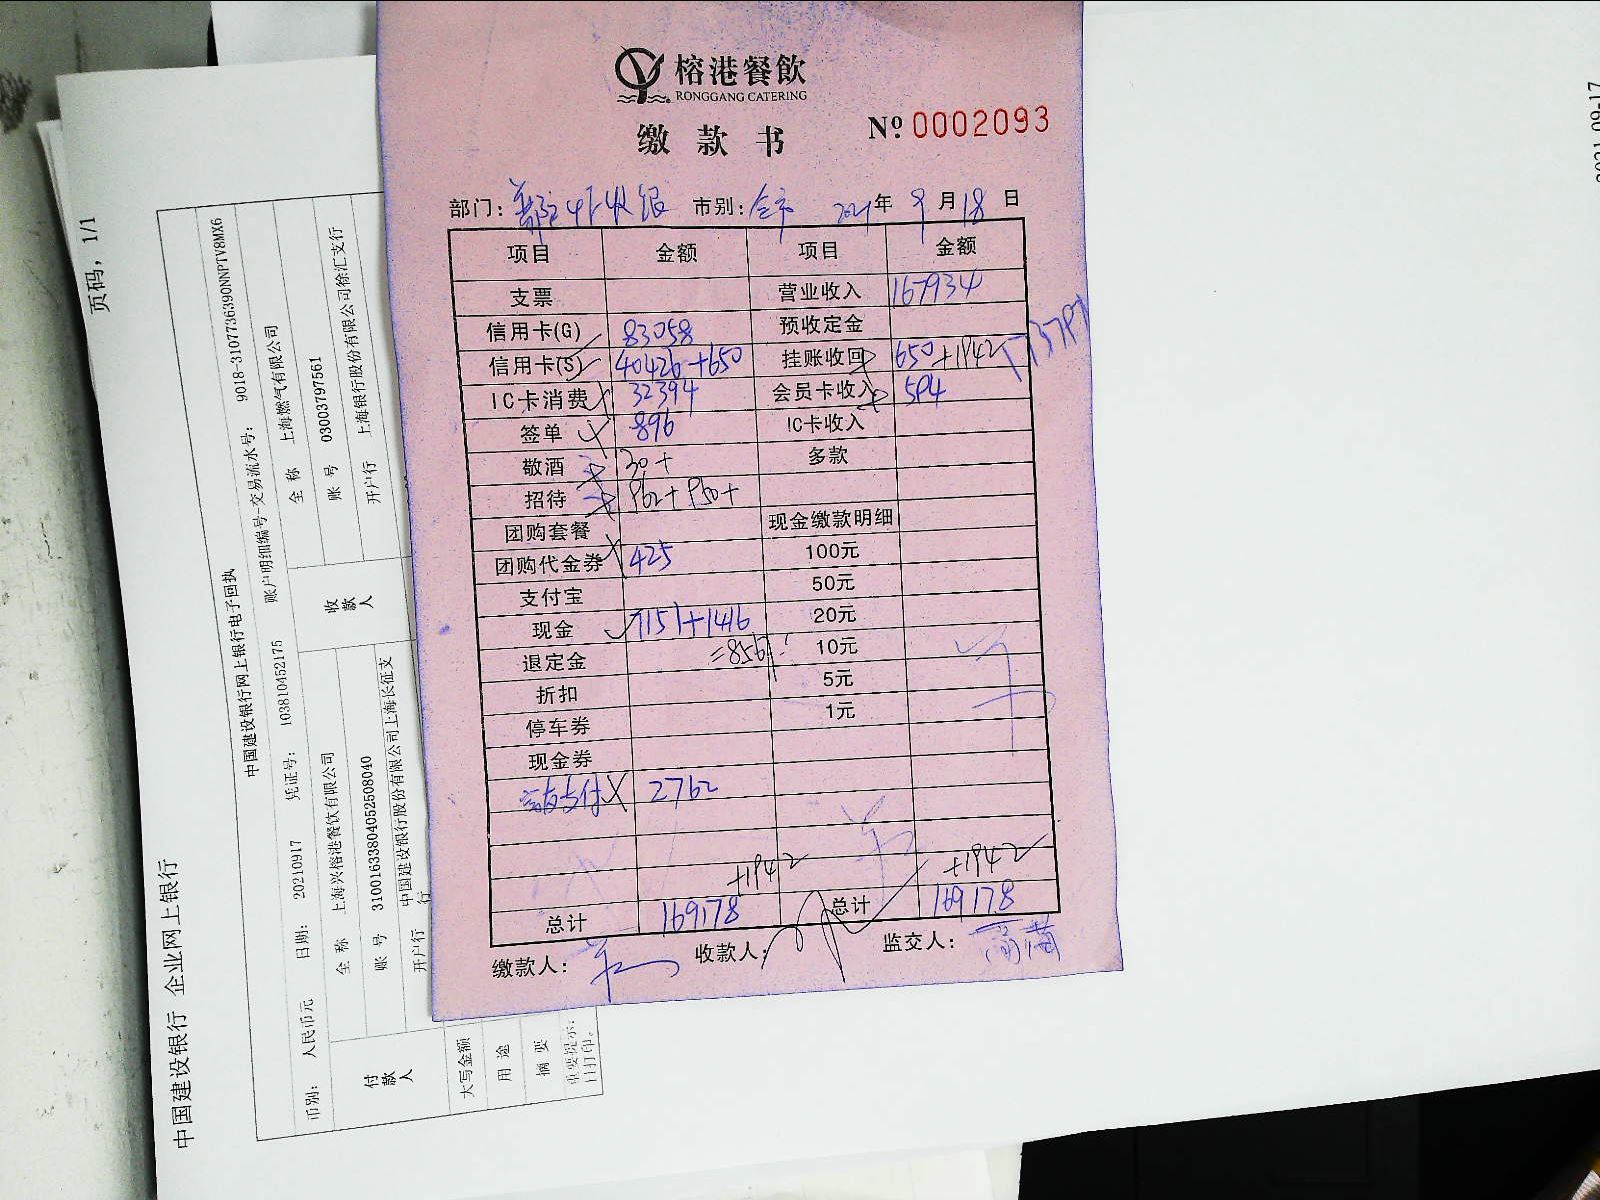 榕港餐飲
RONGGANG CATERING
缴款书 №0002093
部门: 收银 市别: 全市 2021年 9月18日
项目 金额 项目 金额
支票 营业收入 167934
信用卡(G) 83058 预收定金
信用卡(S) 40426+650 挂账收回 650+1942
IC卡消费 32394 会员卡收入 594
签单 896 IC卡收入
敬酒 30+ 多款
招待 962+950+
团购套餐 现金缴款明细
团购代金券 425 100元
支付宝 50元
现金 7151+1416 20元
退定金 =8567 10元
折扣 5元
停车券 1元
现金券
支付 2762
+1942 +1942
总计 169178 总计 169178
缴款人: 收款人: 监交人:
页码, 1/1
中国建设银行 企业网上银行
中国建设银行网上银行电子回执
币别: 人民币元 日期: 20210917 凭证号: 103810452175 账户明细编号-交易流水号: 9018-3107736390NNPTV8MX6
付款人 全称 上海兴榕港餐饮有限公司 收款人 全称 上海燃气有限公司
账号 31001633804052508040 账号 03003797561
开户行 中国建设银行股份有限公司上海长征支行 开户行 上海银行股份有限公司徐汇支行
大写金额
用途
摘要
重要提示:
日打印。
2021-09-17